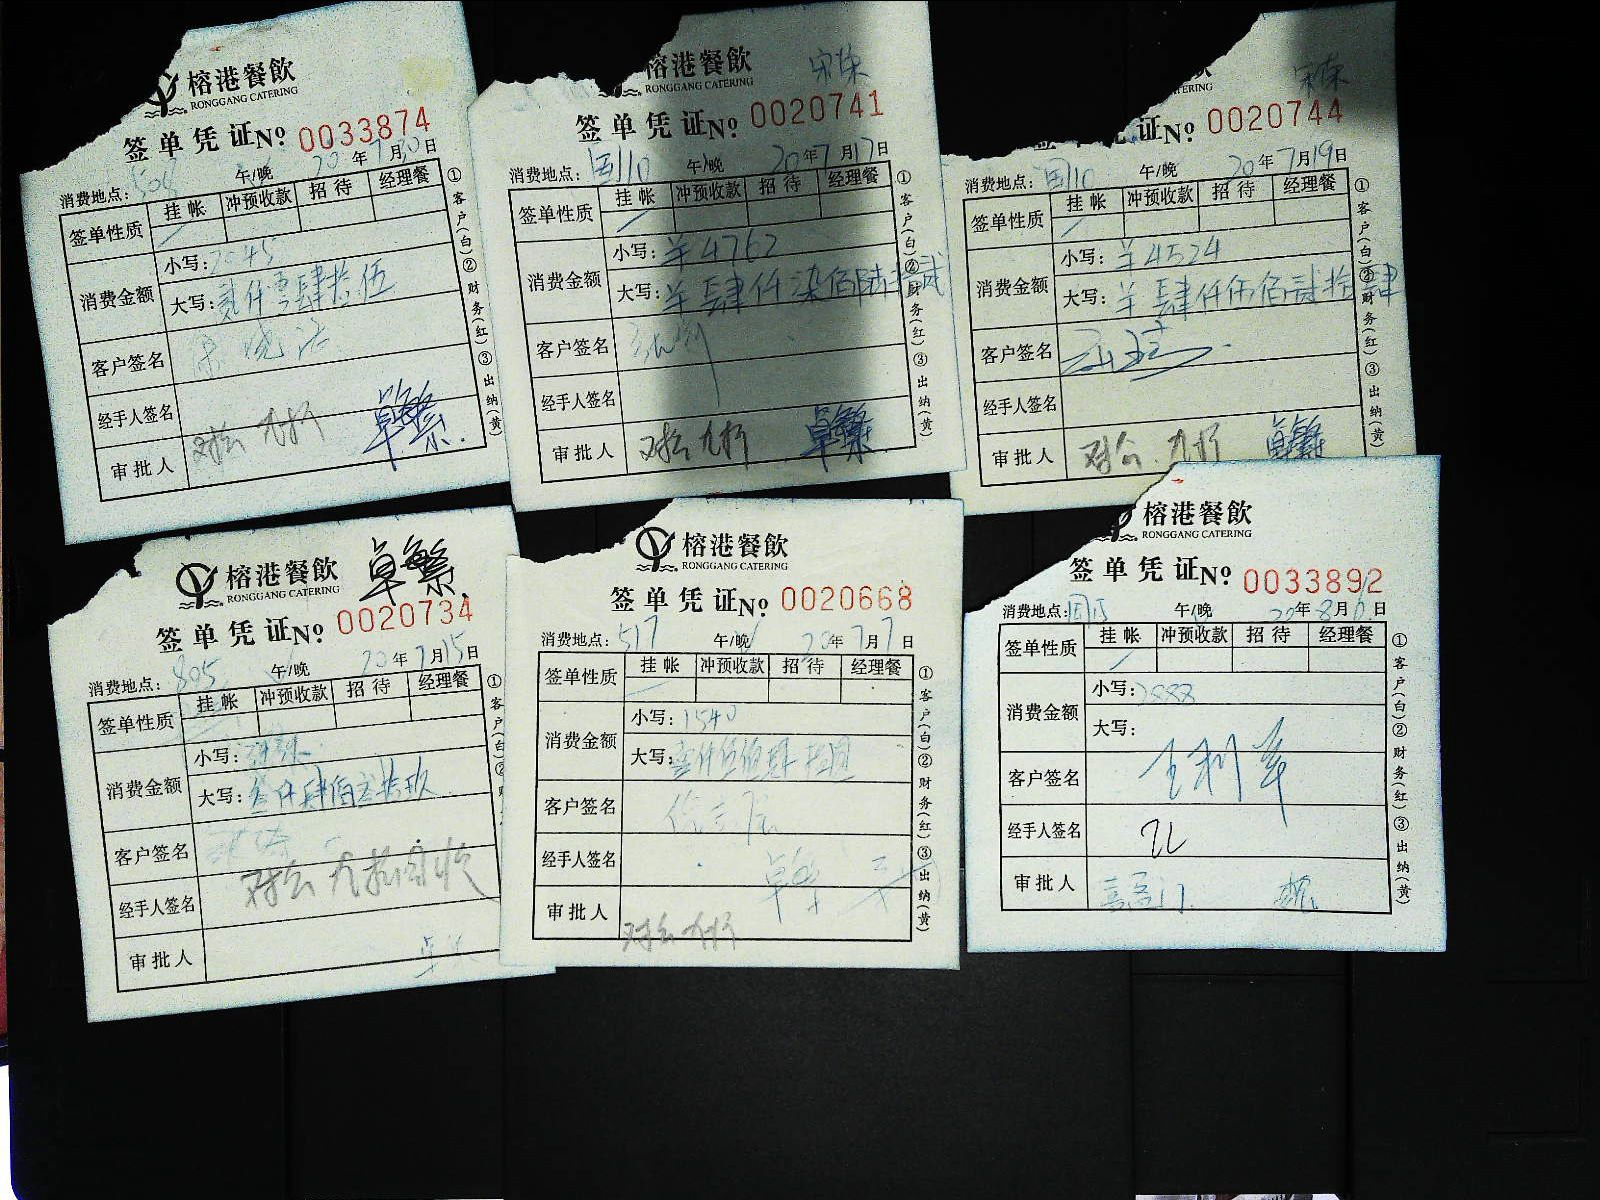 榕港餐飲
RONGGANG CATERING
签单凭证No 0033874
消费地点：508 午/晚 20年7月30日
签单性质 挂帐 冲预收款 招待 经理餐
消费金额 小写：2045
大写：贰仟零肆拾伍
客户签名
经手人签名
审批人 对公 九折 卓繁
①客户(白)②财务(红)③出纳(黄)
榕港餐飲 宋荣
RONGGANG CATERING
签单凭证No 0020741
消费地点：国110 午/晚 20年7月17日
签单性质 挂帐 冲预收款 招待 经理餐
消费金额 小写：羊4762
大写：羊肆仟柒佰陆拾贰
客户签名
经手人签名
审批人 对公 九折 卓繁
①客户(白)②财务(红)③出纳(黄)
宋荣
签单凭证No 0020744
消费地点：国110 午/晚 20年7月19日
签单性质 挂帐 冲预收款 招待 经理餐
消费金额 小写：羊4524
大写：羊肆仟伍佰贰拾肆
客户签名
经手人签名
审批人 对公 九折 卓繁
①客户(白)②财务(红)③出纳(黄)
榕港餐飲 卓繁
RONGGANG CATERING
签单凭证No 0020734
消费地点：805 午/晚 20年7月15日
签单性质 挂帐 冲预收款 招待 经理餐
消费金额 小写：
大写：
客户签名
对公 九折
经手人签名
审批人
①客户(白)
榕港餐飲
RONGGANG CATERING
签单凭证No 0020668
消费地点：517 午/晚 20年7月7日
签单性质 挂帐 冲预收款 招待 经理餐
消费金额 小写：1540
大写：壹仟伍佰肆拾
客户签名
经手人签名
审批人 对公 九折
①客户(白)②财务(红)③出纳(黄)
榕港餐飲
RONGGANG CATERING
签单凭证No 0033892
消费地点： 午/晚 20年8月6日
签单性质 挂帐 冲预收款 招待 经理餐
消费金额 小写：2888
大写：
客户签名
经手人签名
审批人
①客户(白)②财务(红)③出纳(黄)